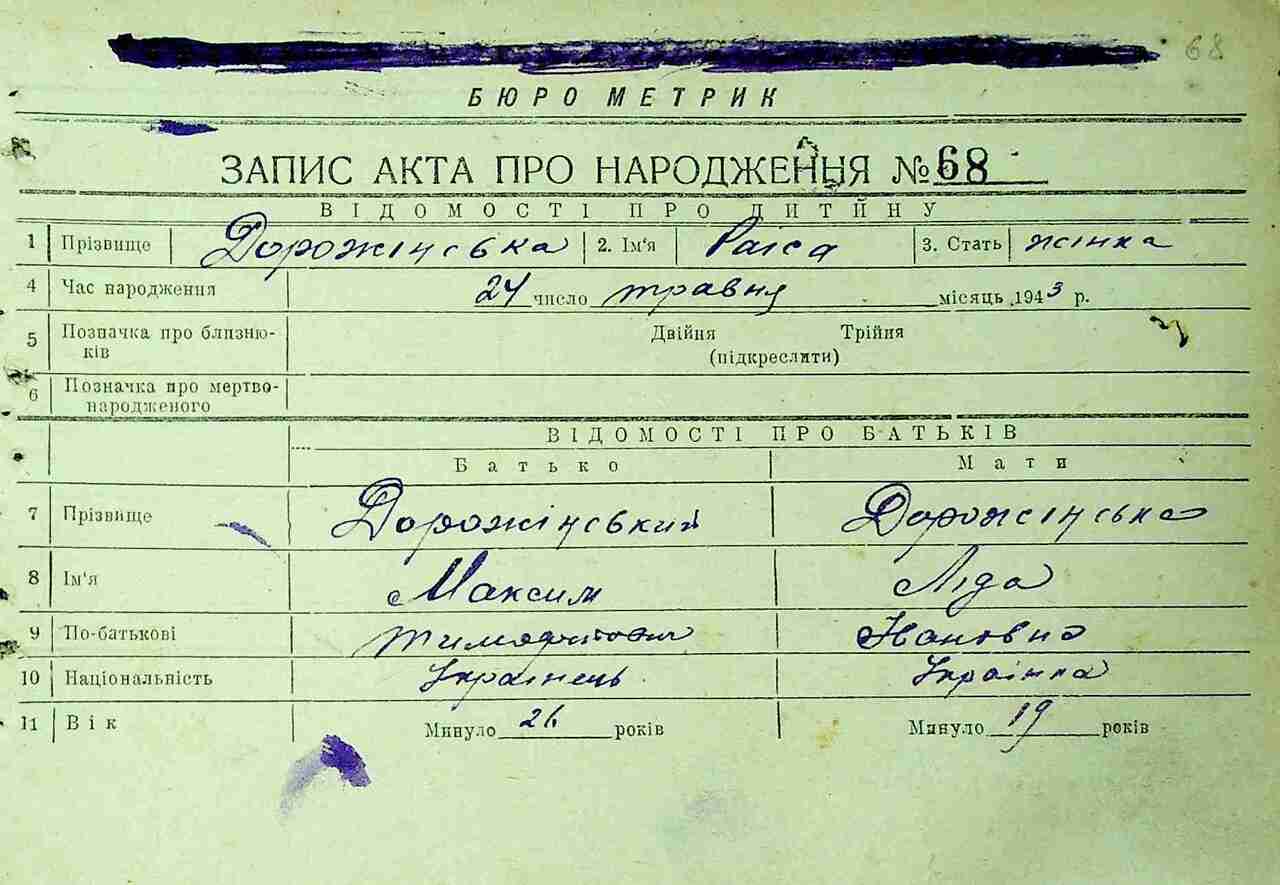 68
БЮРО МЕТРИК
ЗАПИС АКТА ПРО НАРОДЖЕННЯ № 68
ВІДОМОСТІ ПРО ДИТИНУ
1 Прізвище Дорожінська 2. Ім'я Раіса 3. Стать жінка
4 Час народження 24 число травня місяць 1943 р.
5 Позначка про близню- Двійня Трійня
ків (підкреслити)
6 Позначка про мертво-
народженого
ВІДОМОСТІ ПРО БАТЬКІВ
Батько Мати
7 Прізвище Дорожінський Дорожінська
8 Ім'я Максим Ліда
9 По-батькові Тимофійович Івановна
10 Національність Українець Українка
11 Вік Минуло 26 років Минуло 19 років